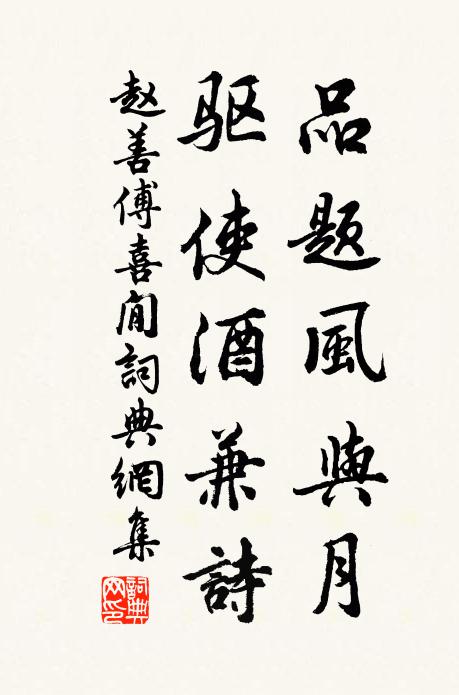 品题風與月
驱使酒兼詩
赵善傅喜閒詞典網集
詞典網印